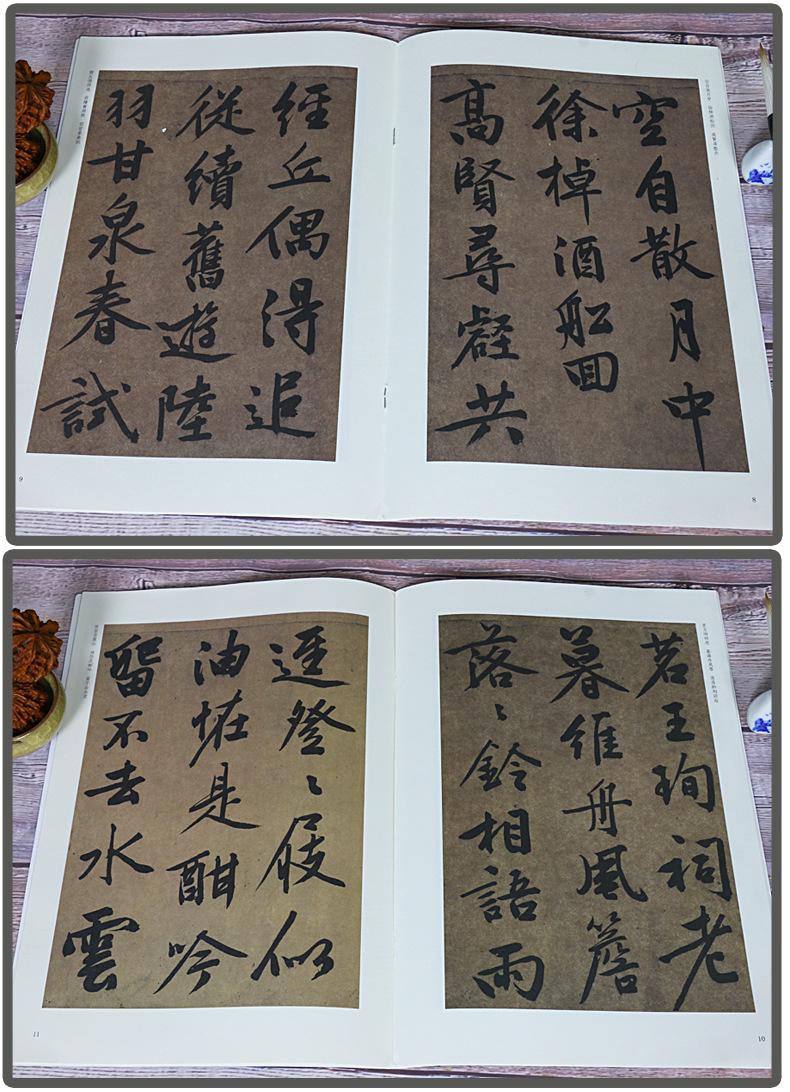 空自散月中
徐棹酒船回
高賢尋壑共
8
經丘偶得追
從續舊遊陸
羽甘泉春試
9
茗王珣祠老
暮維舟風簷
落〻鈴相語雨
10
逕登〻屐似
油恠是酣吟
留不去水雲
11